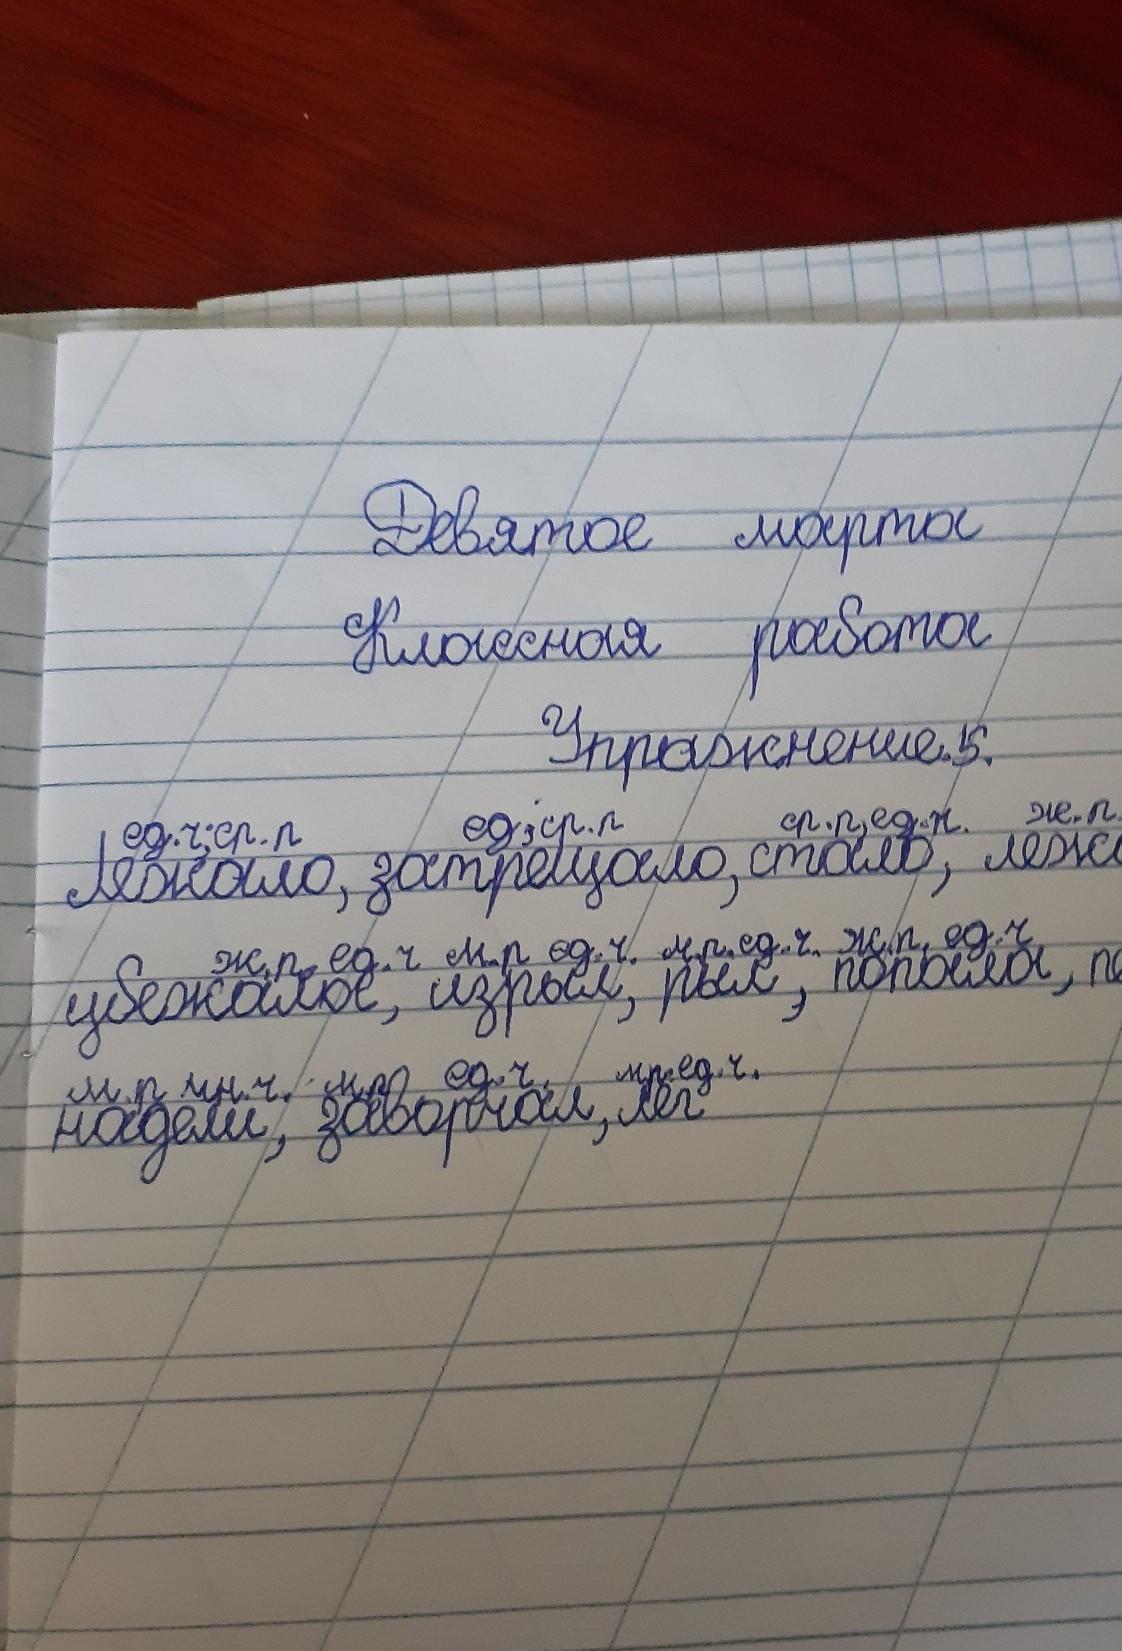 Девятое марта
Классная работа
Упражнение.5.
ед.ч; ср.п ед; ср.п ср.п, ед.ч. ж.п.
Лежало, затрещало, стало, лежа
ж.п. ед.ч м.п ед.ч. м.п. ед.ч. ж.п. ед.ч
убежала, изрыл, рыл, попала, по
м.п мн.ч. м.п ед.ч. м.п. ед.ч.
надели, заворчал, лёг